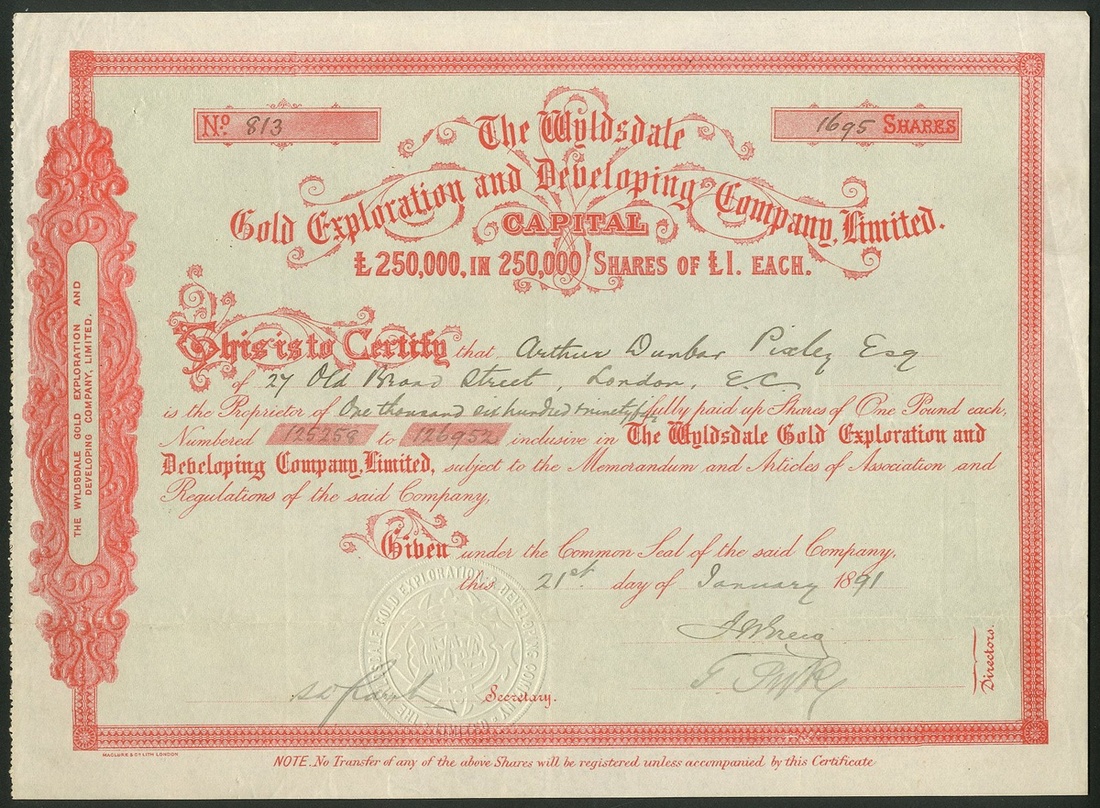 No. 813
1695 SHARES
The Wyldsdale
Gold Exploration and Developing Company, Limited.
CAPITAL
£250,000, IN 250,000 SHARES OF £1. EACH.
This is to Certify that Arthur Dunbar Pixley Esq
of 27 Old Broad Street, London, E.C.
is the Proprietor of One thousand six hundred & ninety five fully paid up Shares of One Pound each,
Numbered 125258 to 126952 inclusive in The Wyldsdale Gold Exploration and
Developing Company, Limited, subject to the Memorandum and Articles of Association and
Regulations of the said Company,
Given under the Common Seal of the said Company,
this 21st. day of January 1891
Directors.
Secretary.
THE WYLDSDALE GOLD EXPLORATION AND
DEVELOPING COMPANY, LIMITED.
THE WYLDSDALE GOLD EXPLORATION DEVELOPING COMPANY LIMITED
MACLURE & CO LITH LONDON
NOTE. No Transfer of any of the above Shares will be registered unless accompanied by this Certificate